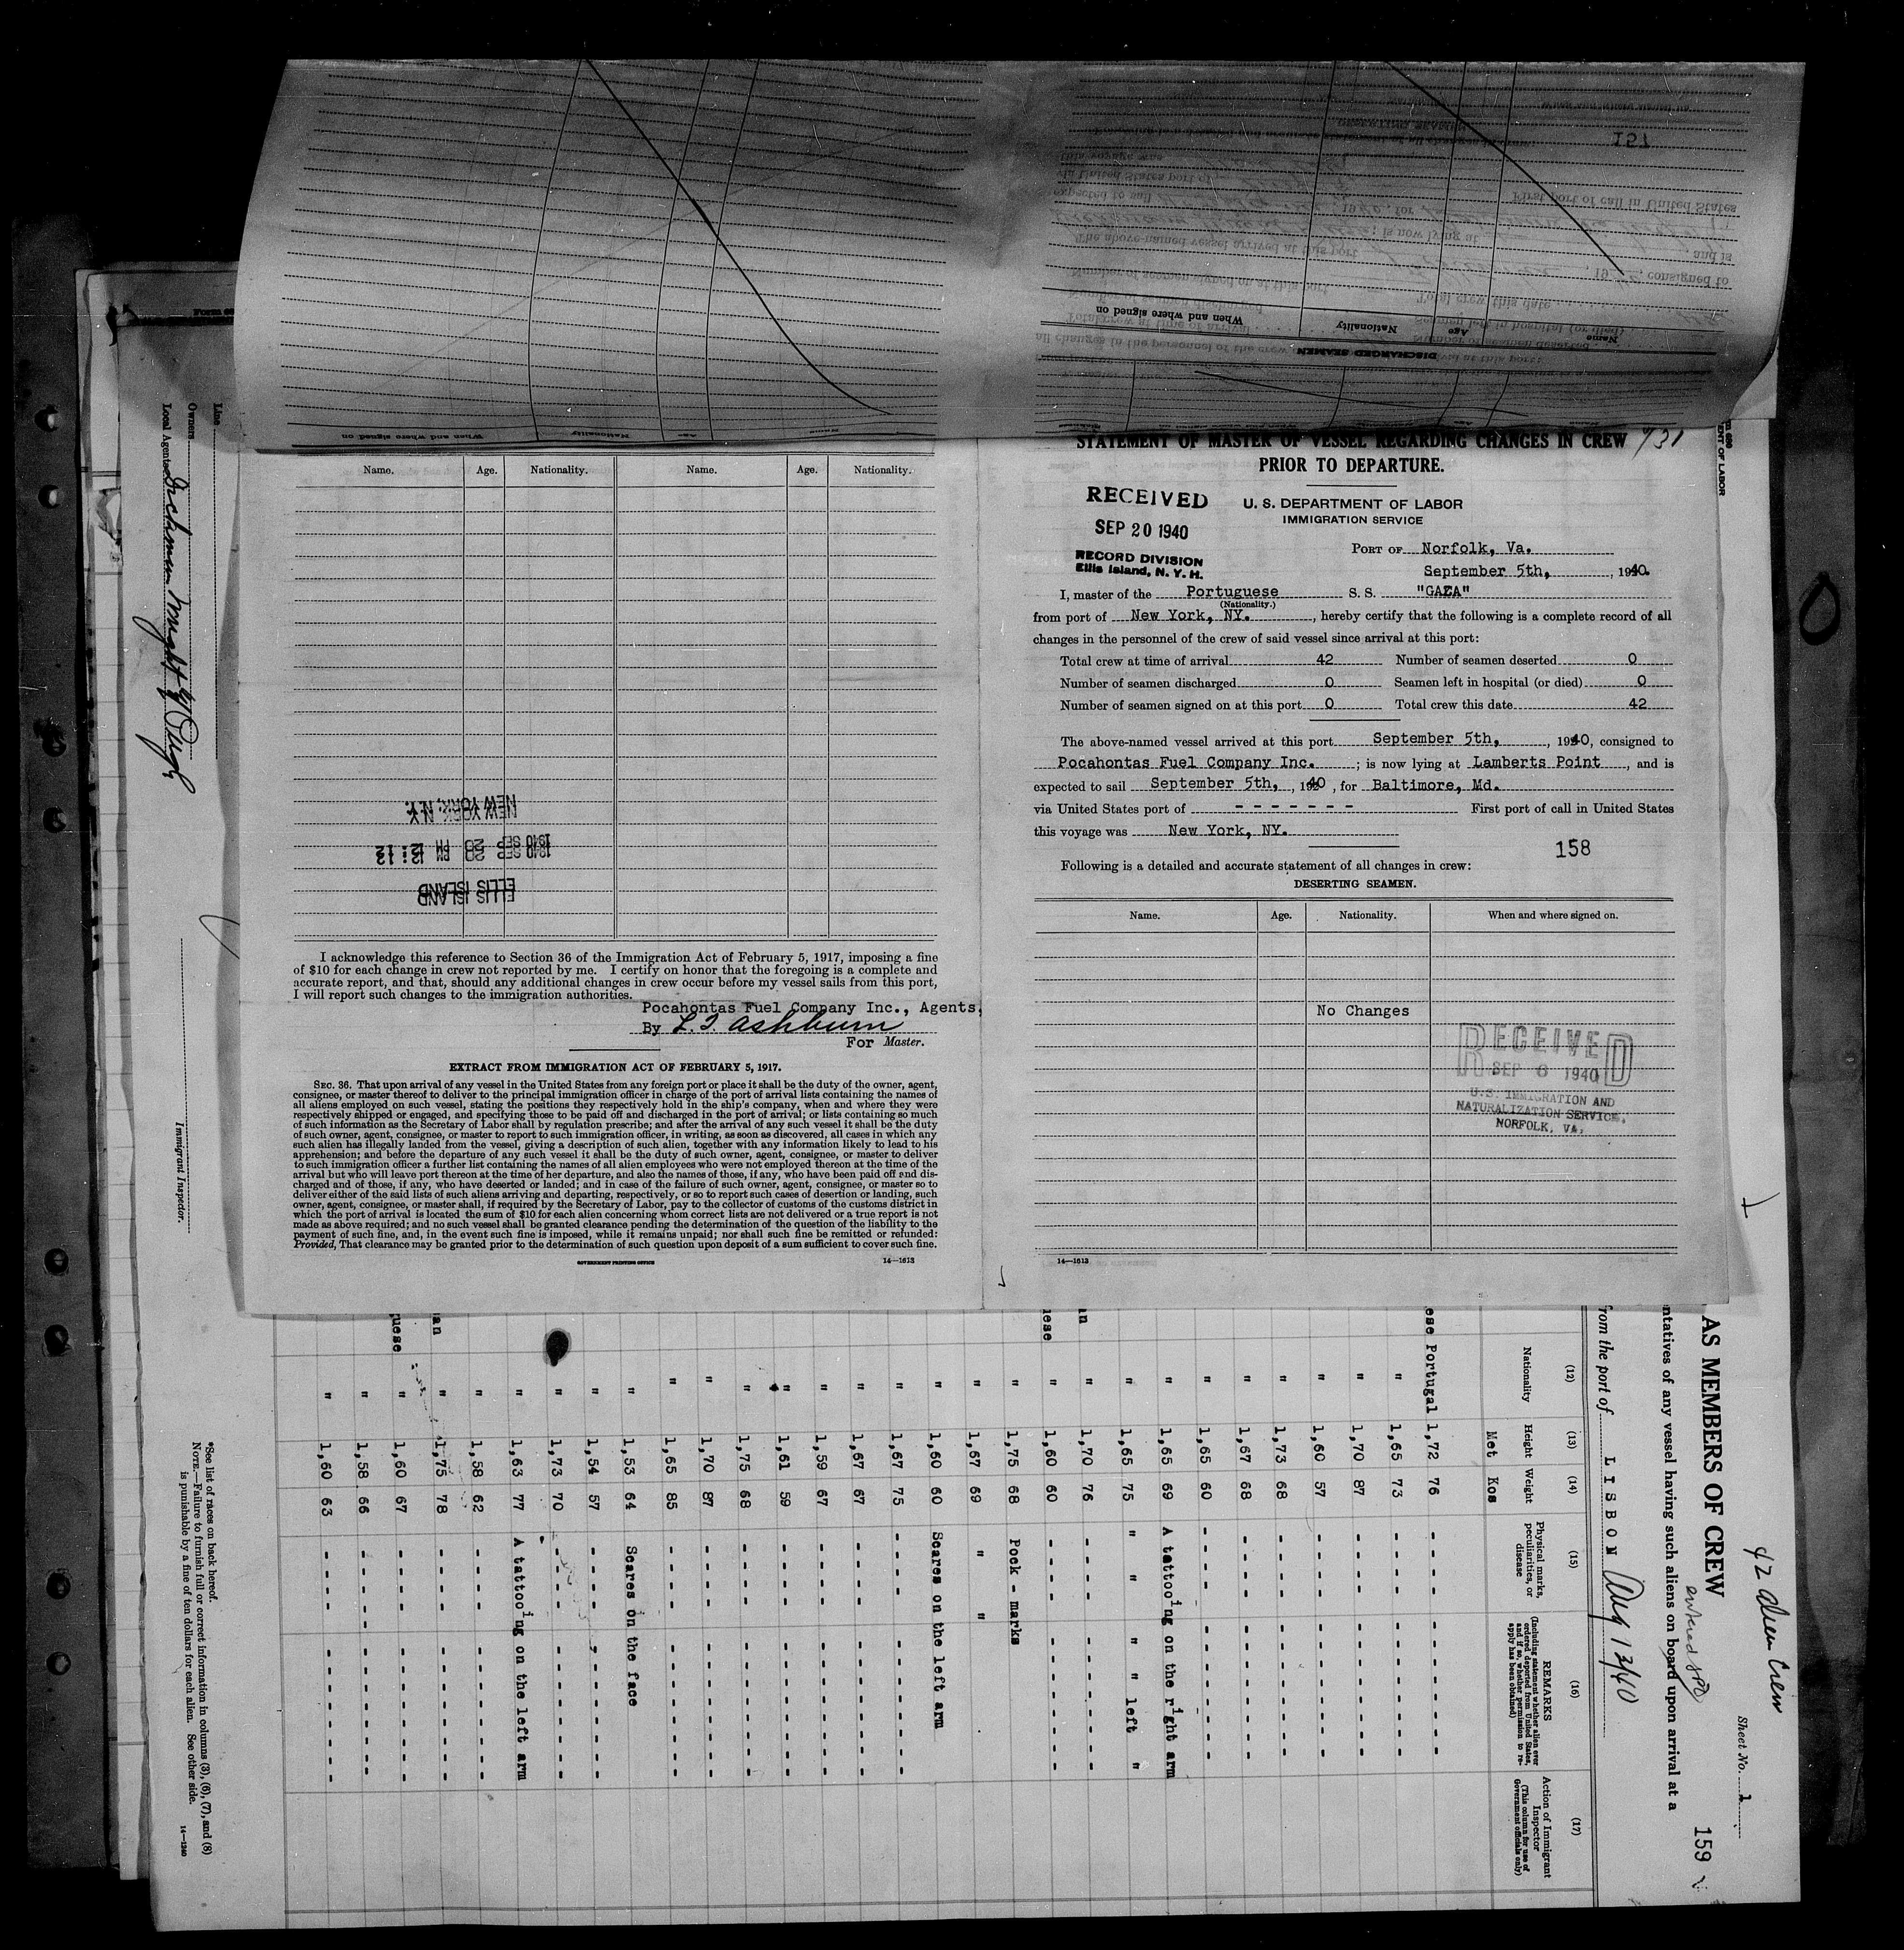 STATEMENT OF MASTER OF VESSEL REGARDING CHANGES IN CREW
PRIOR TO DEPARTURE.
RECEIVED
SEP 20 1940
RECORD DIVISION
Ellis Island, N. Y. H.
U. S. DEPARTMENT OF LABOR
IMMIGRATION SERVICE
PORT OF Norfolk, Va.
September 5th, , 1940.
I, master of the Portuguese S. S. "GAZA"
(Nationality.)
from port of New York, NY. , hereby certify that the following is a complete record of all
changes in the personnel of the crew of said vessel since arrival at this port:
Total crew at time of arrival 42 Number of seamen deserted 0
Number of seamen discharged 0 Seamen left in hospital (or died) 0
Number of seamen signed on at this port 0 Total crew this date 42
The above-named vessel arrived at this port September 5th, , 1940, consigned to
Pocahontas Fuel Company Inc. ; is now lying at Lamberts Point , and is
expected to sail September 5th, , 1940 , for Baltimore, Md.
via United States port of - - - - - - - First port of call in United States
this voyage was New York, NY.
158
Following is a detailed and accurate statement of all changes in crew:
DESERTING SEAMEN.
Name. Age. Nationality. When and where signed on.
No Changes
RECEIVED
SEP 6 1940
U.S. IMMIGRATION AND
NATURALIZATION SERVICE,
NORFOLK, VA.
14—1613
Name. Age. Nationality. Name. Age. Nationality.
NEW YORK, N.Y.
1940 SEP 20 PM 12:12
ELLIS ISLAND
I acknowledge this reference to Section 36 of the Immigration Act of February 5, 1917, imposing a fine
of $10 for each change in crew not reported by me. I certify on honor that the foregoing is a complete and
accurate report, and that, should any additional changes in crew occur before my vessel sails from this port,
I will report such changes to the immigration authorities.
Pocahontas Fuel Company Inc., Agents,
By L. T. Ashburn
For Master.
EXTRACT FROM IMMIGRATION ACT OF FEBRUARY 5, 1917.
SEC. 36. That upon arrival of any vessel in the United States from any foreign port or place it shall be the duty of the owner, agent,
consignee, or master thereof to deliver to the principal immigration officer in charge of the port of arrival lists containing the names of
all aliens employed on such vessel, stating the positions they respectively hold in the ship's company, when and where they were
respectively shipped or engaged, and specifying those to be paid off and discharged in the port of arrival; or lists containing so much
of such information as the Secretary of Labor shall by regulation prescribe; and after the arrival of any such vessel it shall be the duty
of such owner, agent, consignee, or master to report to such immigration officer, in writing, as soon as discovered, all cases in which any
such alien has illegally landed from the vessel, giving a description of such alien, together with any information likely to lead to his
apprehension; and before the departure of any such vessel it shall be the duty of such owner, agent, consignee, or master to deliver
to such immigration officer a further list containing the names of all alien employees who were not employed thereon at the time of the
arrival but who will leave port thereon at the time of her departure, and also the names of those, if any, who have been paid off and dis-
charged and of those, if any, who have deserted or landed; and in case of the failure of such owner, agent, consignee, or master so to
deliver either of the said lists of such aliens arriving and departing, respectively, or so to report such cases of desertion or landing, such
owner, agent, consignee, or master shall, if required by the Secretary of Labor, pay to the collector of customs of the customs district in
which the port of arrival is located the sum of $10 for each alien concerning whom correct lists are not delivered or a true report is not
made as above required; and no such vessel shall be granted clearance pending the determination of the question of the liability to the
payment of such fine, and, in the event such fine is imposed, while it remains unpaid; nor shall such fine be remitted or refunded:
Provided, That clearance may be granted prior to the determination of such question upon deposit of a sum sufficient to cover such fine.
GOVERNMENT PRINTING OFFICE 14—1613
Sheet No. 1
159
42 alien crew
AS MEMBERS OF CREW
ntatives of any vessel having such aliens on board upon arrival at a
from the port of LISBON Aug 13/40
(12) (13) (14) (15) (16) (17)
Nationality Height Weight Physical marks, peculiarities, or disease REMARKS
(Including statement whether alien ever ordered deported from United States, and if so, whether permission to re-apply has been obtained)
Action of Immigrant Inspector
(This column for use of Government officials only)
Met Kos
ese Portugal 1,72 76 - - - -
" 1,65 73 - - - -
" 1,70 87 - - - -
" 1,60 57 - - - -
" 1,73 68 - - - -
" 1,67 68 - - - -
" 1,65 60 - - - -
" 1,65 69 A tattooing on the right arm
" 1,65 75 " " " " left "
" 1,70 76 - - - -
" 1,60 60 - - - -
" 1,75 68 Pock - marks
" 1,67 69 " "
" 1,60 60 Scares on the left arm
" 1,67 75 - - - -
" 1,67 67 - - - -
" 1,59 67 - - - -
" 1,61 59 - - - -
" 1,75 68 - - - -
" 1,70 87 - - - -
" 1,65 85 - - - -
" 1,53 64 Scares on the face
" 1,54 57 - - - -
" 1,73 70 - - - -
" 1,63 77 A tattooing on the left arm
" 1,58 62 - - - -
" 1,75 78 - - - -
" 1,60 67 - - - -
" 1,58 66 - - - -
" 1,60 63 - - - -
Line
Owners
Local Agents
Immigrant Inspector.
*See list of races on back hereof.
NOTE.—Failure to furnish full or correct information in columns (3), (6), (7), and (8)
is punishable by a fine of ten dollars for each alien. See other side.
14—1240
DISCHARGED SEAMEN
Name Age Nationality When and where signed on
157